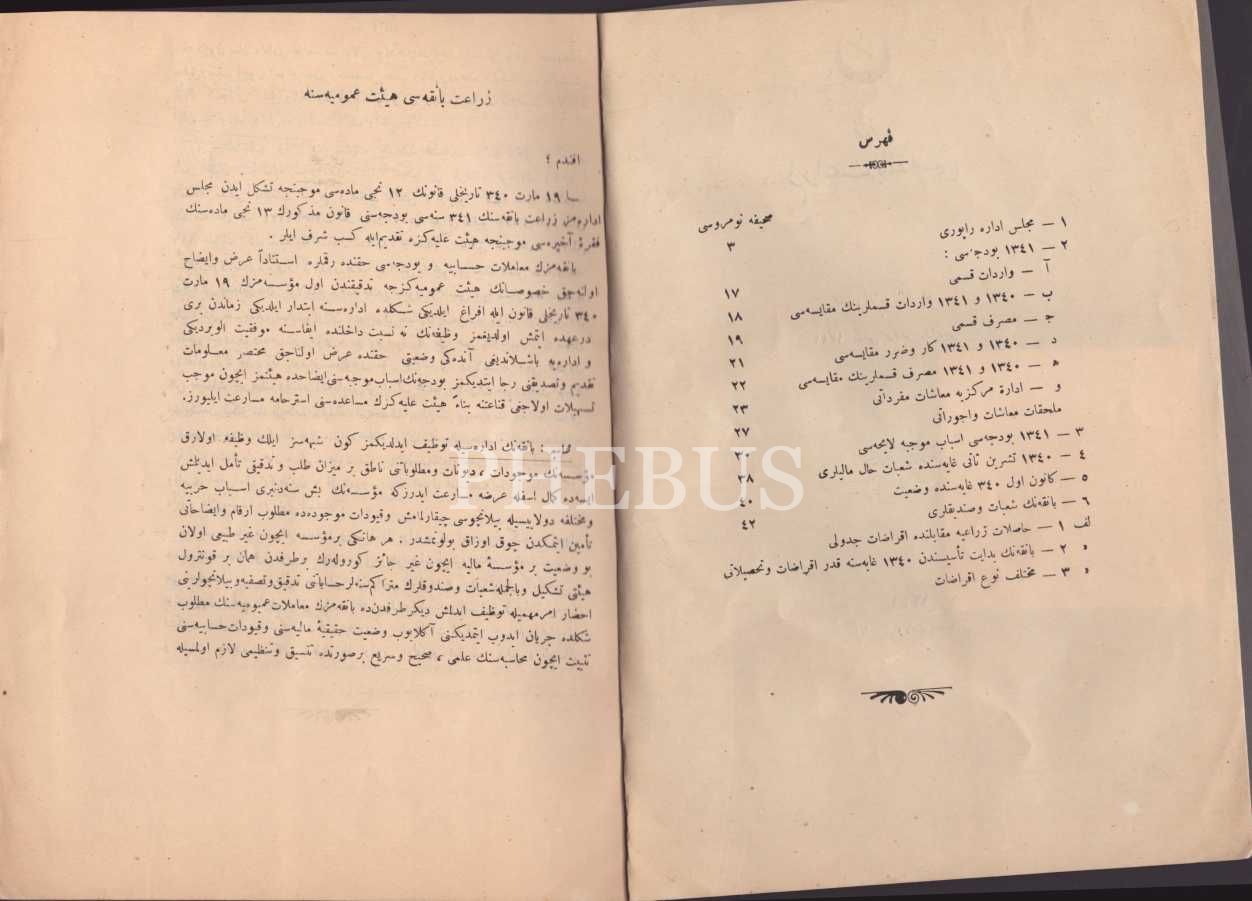 فهرس
صحیفه نومروسی
۱ — مجلس اداره راپوری
۳
۲ — ۱۳٤۱ بودجه‌سی :
آ — واردات قسمی
۱۷
ب — ۱۳٤۰ و ۱۳٤۱ واردات قسملرینك مقایسه‌سی
۱۸
ج — مصرف قسمی
۱۹
د — ۱۳٤۰ و ۱۳٤۱ كار وضرر مقایسه‌سی
۲۱
ه — ۱۳٤۰ و ۱۳٤۱ مصرف قسملرینك مقایسه‌سی
۲۲
و — ادارۀ مركزیه معاشات مفرداتی
۲۳
ملحقات معاشات واجوراتی
۲۷
۳ — ۱۳٤۱ بودجه‌سی اسباب موجبه لایحه‌سی
٤ — ۱۳٤۰ تشرین ثانی غایه‌سنده شعبات حال مالیلری
۳۸
۵ — كانون اول ۳٤۰ غایه‌سنده وضعیت
٤۰
٦ — بانقه‌نك شعبات وصندیقلری
٤۲
لف ۱ — حاصلات زراعیه مقابلنده اقراضات جدولی
» ۲ — بانقه‌نك بدایت تأسیسندن ۱۳٤۰ غایه‌سنه قدر اقراضات وتحصیلاتی
» ۳ — مختلف نوع اقراضات
زراعت بانقه‌سی هیئت عمومیه‌سنه
افندم ؛
۱۹ مارت ۳٤۰ تاریخلی قانونك ۱۲ نجی ماده‌سی موجبنجه تشكل ایدن مجلس
اداره‌مز زراعت بانقه‌سنك ۳٤۱ سنه‌سی بودجه‌سنی قانون مذكورك ۱۳ نجی ماده‌سنك
فقرۀ اخیره‌سی موجبنجه هیئت علیه‌كزه تقدیم‌ایله كسب شرف ایلر .
بانقه‌مزك معاملات حسابیه و بودجه‌سی حقنده رقملره استناداً عرض وایضاح
اولنه‌جق خصوصاتك هیئت عمومیه‌كزجه تدقیقندن اول مؤسسه‌مزك ۱۹ مارت
۳٤۰ تاریخلی قانون ایله افراغ ایلدیكی شكلده اداره‌سنه ابتدار ایلدیكی زماندن بری
درعهده اتمش اولدیغمز وظیفه‌نك نه نسبت داخلنده ایفاسنه موفقیت الویردیكی
و اداره‌یه باشلاندیغی آنده‌كی وضعیتی حقنده عرض اولناجق مختصر معلومات
تقدیم وتصدیقنی رجا ایتدیكمز بودجه‌نك اسباب موجبه‌سنی ایضاحده هیئتمز ایچون موجب
تسهیلات اولاجغی قناعتنه بناءً هیئت علیه‌كزك مساعده‌سنی استرحامه مسارعت ایلیورز.
بانقه‌نك اداره‌سیله توظیف ایدلدیكمز كون شبهه‌سز ایلك وظیفه اولارق
مؤسسه‌نك موجودات ، دیونات ومطلوباتنی ناطق بر میزان طلب و تدقیقی تأمل ایدیلمش
ایسه‌ده كمال اسفله عرضه مسارعت ایدرزكه مؤسسه‌نك بش سنه‌دنبری اسباب حربیه
ومختلفه دولاییسیله بیلانچوسی چیقارلمامش وقیودات موجوده‌ده مطلوب ارقام وایضاحاتی
تأمین ایتمكدن چوق اوزاق بولونمشدر . هر هانكی برمؤسسه ایچون غیر طبیعی اولان
بو وضعیت بر مؤسسۀ مالیه ایچون غیر جائز كوروله‌رك برطرفدن همان بر قونترول
هیئتی تشكیل وبالجمله شعبات وصندوقلرك متراكم سنه‌لر حساباتی تدقیق وتصفیه وبیلانچولرینی
احضار امر مهمیله توظیف ایدلمش دیكر طرفدن‌ده بانقه‌مزك معاملات عمومیه‌سنك مطلوب
شكلده جریان ایدوب ایتمدیكنی آكلایوب وضعیت حقیقیۀ مالیه‌سنی وقیودات حسابیه‌سنی
تثبیت ایچون محاسبه‌سنك علمی ، صحیح وسریع برصورتده تنسیق وتنظیمی لازم اولمسیله
PHEBUS